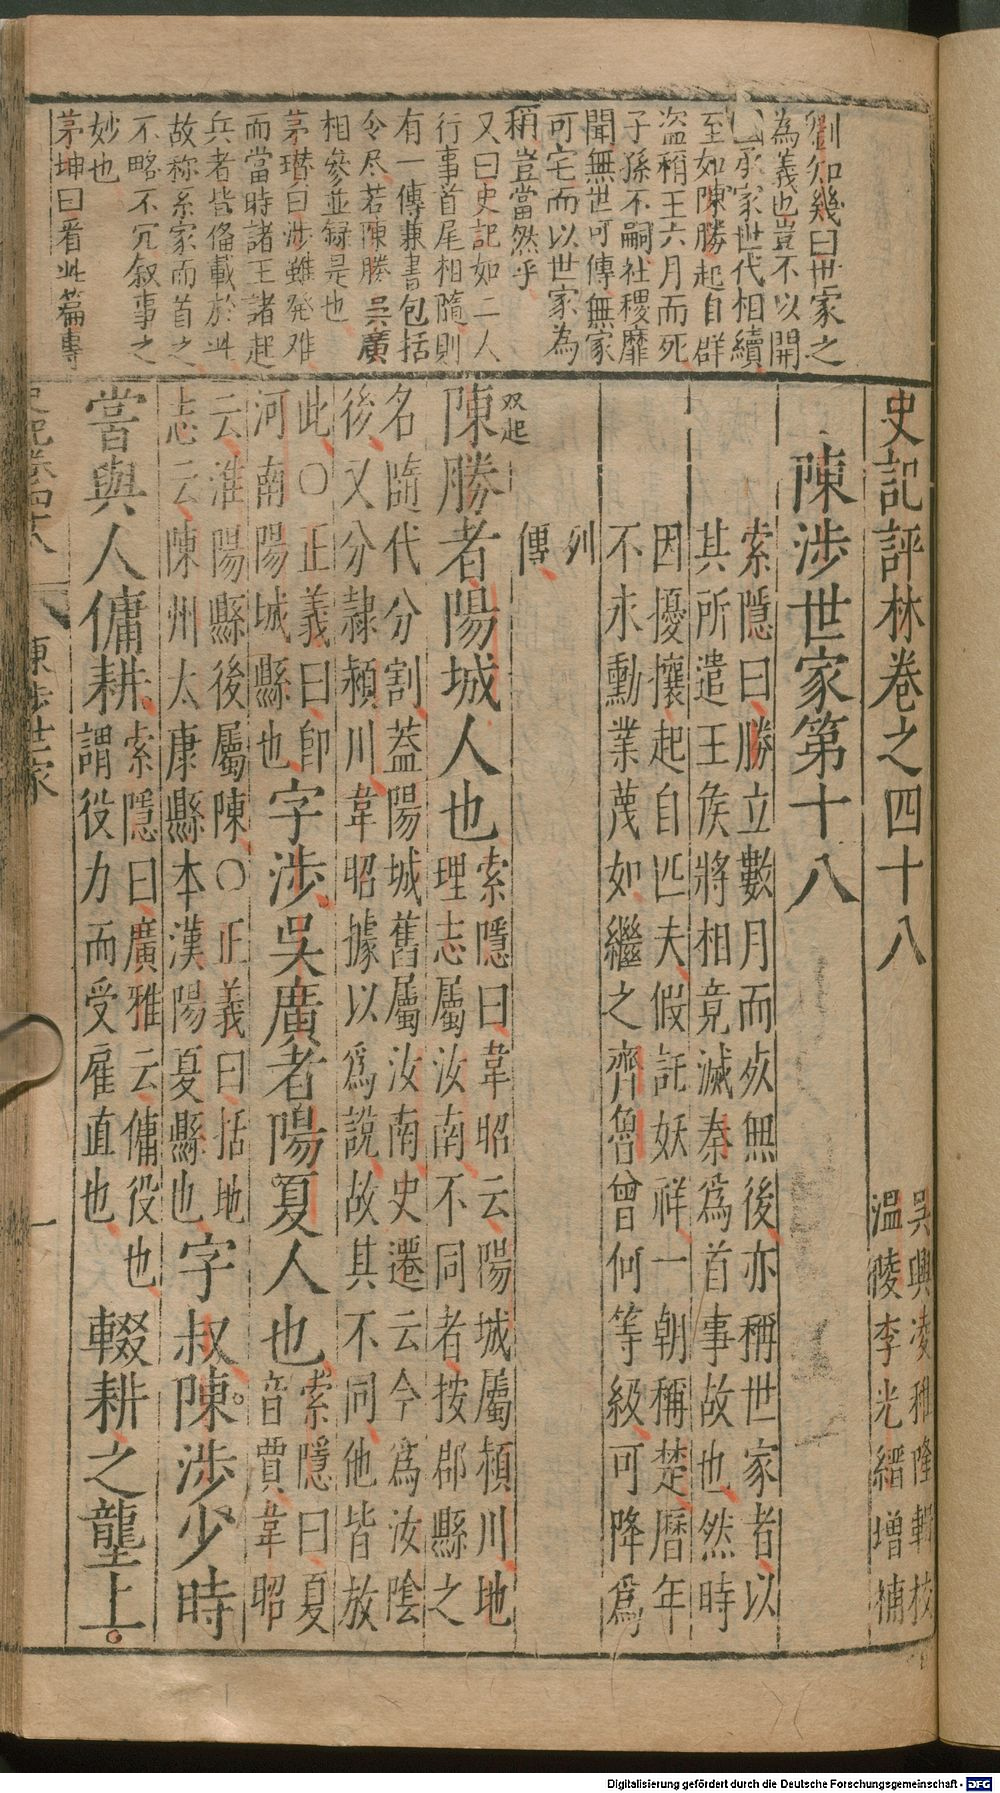 劉知幾曰世家之
為義也豈不以開
國承家世代相續
至如陳勝起自群
盜稱王六月而死
子孫不嗣社稷靡
聞無世可傳無家
可宅而以世家為
稱豈當然乎
又曰史記如二人
行事首尾相隨則
有一傳兼書包括
令尽若陳勝吳廣
相參並録是也
茅瓚曰涉雖発难
而當時諸王諸起
兵者皆俻載於此
故称系家而首之
不略不冗叙事之
妙也
茅坤曰看此篇專
史記評林卷之四十八
吳興凌稚隆輯校
温陵李光縉增補
陳涉世家第十八
索隱曰勝立數月而死無後亦稱世家者以
其所遣王侯將相竟滅秦爲首事故也然時
因擾攘起自匹夫假託妖祥一朝稱楚曆年
不永勳業蔑如繼之齊魯曾何等級可降爲
列
傳
双起
陳勝者陽城人也
索隱曰韋昭云陽城屬潁川地
理志屬汝南不同者按郡縣之
名隨代分割蓋陽城舊屬汝南史遷云今爲汝陰
後又分隷潁川韋昭據以爲說故其不同他皆放
此〇正義曰即
河南陽城縣也
字涉吳廣者陽夏人也
索隱曰夏
音賈韋昭
云淮陽縣後屬陳〇正義曰括地
志云陳州太康縣本漢陽夏縣也
字叔陳涉少時
嘗與人傭耕
索隱曰廣雅云傭役也
謂役力而受雇直也
輟耕之壟上
史記卷四十八
陳涉世家
一
Digitalisierung gefördert durch die Deutsche Forschungsgemeinschaft - DFG